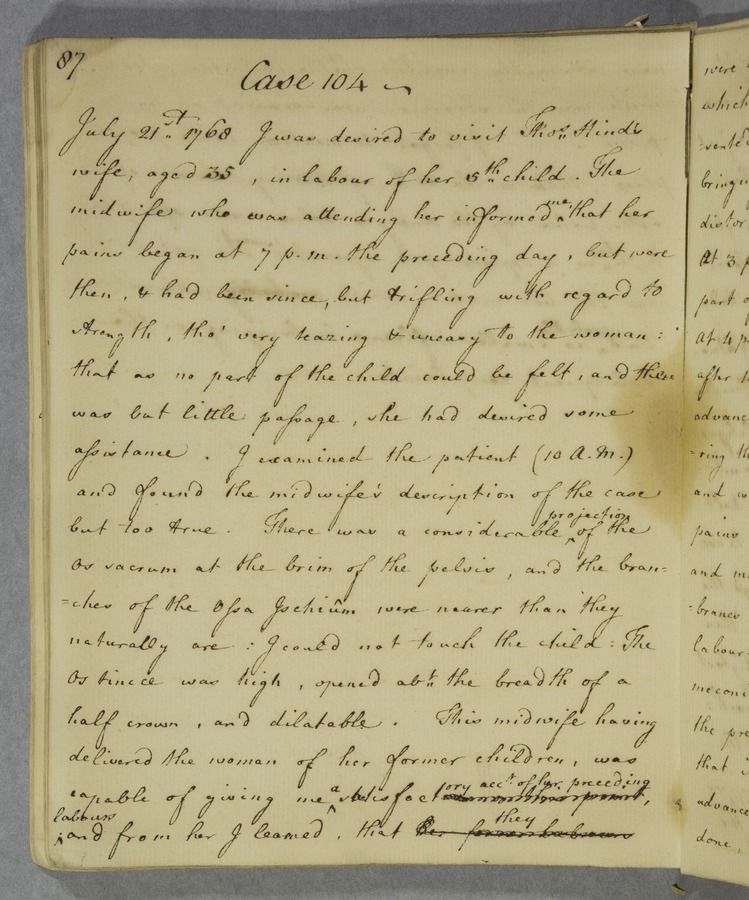 87
Case 104
July 21st 1768 I was desired to visit Thos. Hind's
wife, aged 35, in labour of her 5th child. The
midwife who was attending her informed me that her
pains began at 7 p.m. the preceding day, but were
then, & had been since, but trifling with regard to
strength, tho' very teazing & uneasy to the woman:
that as no part of the child could be felt, and there
was but little passage, she had desired some
assistance. I examined the patient (10 A.M.)
and found the midwife's description of the case
but too true. There was a considerable projection of the
os sacrum at the brim of the pelvis, and the bran=
=ches of the Ossa Ischium were nearer than they
naturally are: I could not touch the child: The
Os tincæ was high, opened abt. the breadth of a
half crown, and dilatable. This midwife having
delivered the woman of her former children, was
capable of giving me a satisfactory acct. of her preceding
labours, and from her I learned, that they
were
which
=sente
bring
distor
At 3 p
part o
At 4 p
after
advanc
=ring th
and w
pains
and m
=branes
labour
meconi
the pre
that i
advance
done,